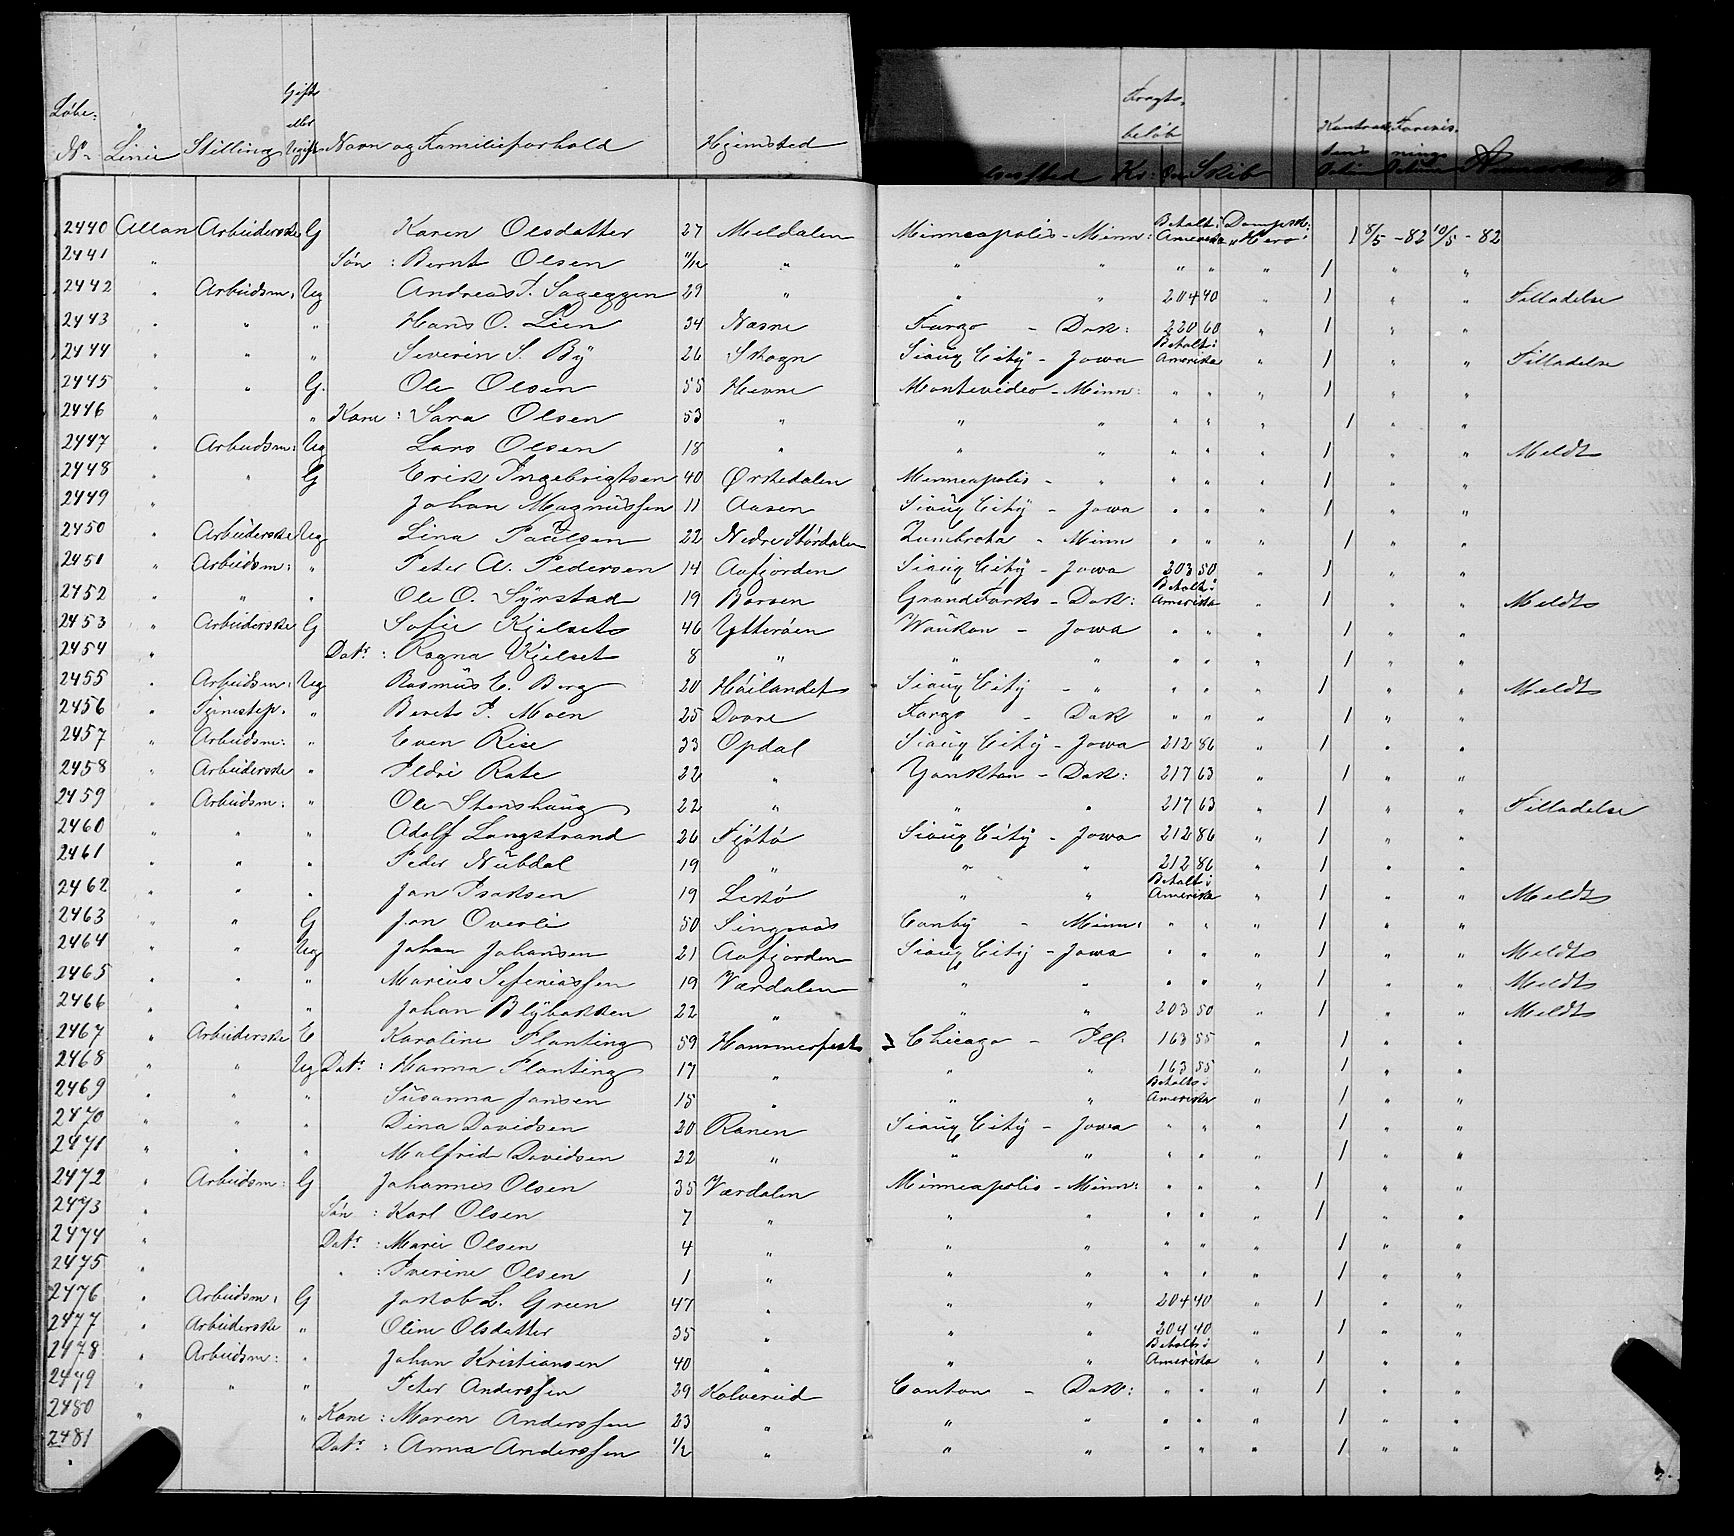 Løbe- Gift eller Fragts- Kontrak- Forevis-
No. Linie Stilling Ugift Navn og Familieforhold Hjemsted beløb Kr: Øre Skib
2440 Allan Arbeiderske G Karen Olsdatter 27 Meldalen Minneapolis - Minn: Betalt i Amerika Dampsk: "Hero" 1 8/5 - 82 10/5 - 82
2441 " Søn : Bernt Olsen 11/12 " " " " " " 1 " "
2442 " Arbeidsm: Ug Andreas J. Sageggen 29 " " " 204 40 " 1 " " Tilladelse
2443 " " " Hans O. Lien 34 Næsne Fargo - Dak: 220 60 " 1 " "
2444 " " " Severin S. Bÿ 26 Skogn Sioux City - Jowa Betalt i Amerika " 1 " " Tilladelse
2445 " " G. Ole Olsen 55 Hevne Montevideo - Minn: " " " 1 " "
2446 " " Kone : Sara Olsen 53 " " " " " " 1 " "
2447 " Arbeidsm: Ug Lars Olsen 18 " " " " " " 1 " " Meldt
2448 " " G Erik Ingebrigtsen 40 Ørkedalen Minneapolis - " " " " 1 " "
2449 " Johan Magnüssen 11 Aasen Sioux City - Jowa " " " 1 " "
2450 " Arbeiderske Ug Lina Paülsen 22 Nedre Stördalen Zumbrota - Minn " " " 1 " "
2451 " Arbeidsm: " Peter A. Pedersen 14 Aafjorden Sioux City - Jowa 203 50 " 1 " "
2452 " " " Ole O. Sÿrstad 19 Børsen Grand Forks - Dak: Betalt i Amerika " 1 " " Meldt
2453 " Arbeiderske G Sofie Kjelset 46 Ytterøen Waükon - Jowa " " " 1 " "
2454 " Datr : Ragna Kjelset 8 " " " " " " 1 " "
2455 " Arbeidsm: Ug Rasmüs E. Berg 20 Høilandet Sioux City - " " " " 1 " " Meldt
2456 " Tjenestep. " Beret P. Moen 25 Dovre Fargo - Dak " " " 1 " "
2457 " Arbeidsm: " Even Rise 33 Opdal Sioux City - Jowa 212 86 " 1 " "
2458 " Arbeiderske " Ildri Rate 22 " Yankton - Dak: 217 63 " 1 " "
2459 " Arbeidsm: " Ole Stenshaüg 22 " " " 217 63 " 1 " " Tilladelse
2460 " " " Adolf Langstrand 26 Fjøtø Sioux City - Jowa 212 86 " 1 " "
2461 " " " Peder Nübdal 19 " " " 212 86 " 1 " "
2462 " " " Jan Isaksen 19 Lekø " " Betalt i Amerika " 1 " " Meldt
2463 " " G Jon Overli 50 Singsaas Canby - Minn: " " " 1 " "
2464 " " Ug Johan Johansen 21 Aafjorden Sioux City - Jowa " " " 1 " " Meldt
2465 " " " Mariüs Sefeniassen 19 Værdalen " " " " " 1 " " Meldt
2466 " " " Johan Blÿbakken 22 " " " 203 50 " 1 " " Meldt
2467 " Arbeiderske E Karoline Planting 59 Hammerfest Chicago - Ill. 163 55 " 1 " "
2468 " " Ug Datr : Hanna Planting 17 " " " 163 55 " 1 " "
2469 " " " Susanna Jansen 15 " " " Betalt i Amerika " 1 " "
2470 " " " Dina Davidsen 20 Ranen Sioux City - Jowa " " " 1 " "
2471 " " " Malfrid Davidsen 22 " " " " " " 1 " "
2472 " Arbeidsm: G Johannes Olsen 35 Værdalen Minneapolis - Minn: " " " 1 " "
2473 " Søn : Karl Olsen 7 " " " " " " 1 " "
2474 " Datr : Marie Olsen 4 " " " " " " 1 " "
2475 " " : Iverine Olsen 1 " " " " " " 1 " "
2476 " Arbeidsm: G Jakob L. Green 47 " " " 204 40 " 1 " "
2477 " Arbeiderske " Oline Olsdatter 35 " " " 204 40 " 1 " "
2478 " Arbeidsm: " Johan Kristiansen 40 " " " Betalt i Amerika " 1 " "
2479 " " " Peter Anderssen 29 Kolvereid Canton - Dak: " " " 1 " "
2480 " " Kone : Maren Anderssen 23 " " " " " " 1 " "
2481 " Datr : Anna Anderssen 1/2 " " " " " " 1 " "